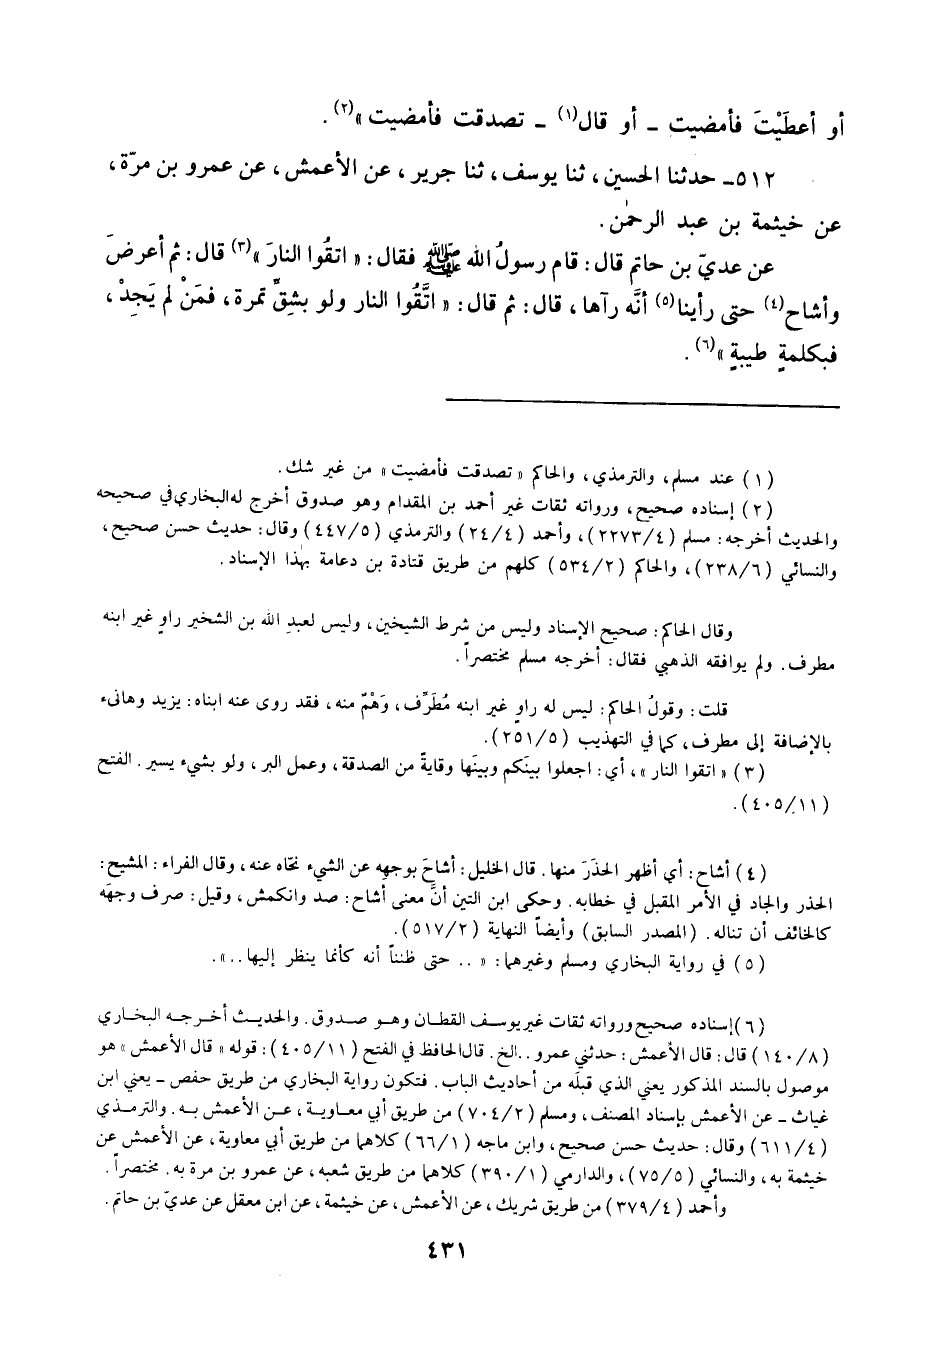 أو أعطَيْتَ فأمضيت ـ أو قال(١) ـ تصدقت فأمضيت »(٢) .
٥١٢ـ حدثنا الحسين ، ثنا يوسف ، ثنا جرير ، عن الأعمش ، عن عمرو بن مرّة ،
عن خيثمة بن عبد الرحمٰن .
عن عديّ بن حاتم قال : قام رسولُ الله ﷺ فقال : « اتقُوا النارَ »(٣) قال : ثم أعرضَ
وأشاح(٤) حتى رأينا(٥) أنَّه رآها ، قال : ثم قال : « اتَّقُوا النار ولو بشِقِّ تمرة ، فمَنْ لم يَجِدْ ،
فبكلمةٍ طيبةٍ »(٦) .
(١) عند مسلم ، والترمذي ، والحاكم « تصدقت فأمضيت » من غير شك .
(٢) إسناده صحيح ، ورواته ثقات غير أحمد بن المقدام وهو صدوق أخرج له البخاري في صحيحه
والحديث أخرجه : مسلم (٤/٢٢٧٣) ، وأحمد (٤/٢٤) والترمذي (٥/٤٤٧) وقال : حديث حسن صحيح ،
والنسائي (٦/٢٣٨) ، والحاكم (٢/٥٣٤) كلهم من طريق قتادة بن دعامة بهٰذا الإسناد .
وقال الحاكم : صحيح الإسناد وليس من شرط الشيخين ، وليس لعبدِ الله بن الشخير راوٍ غير ابنه
مطرف . ولم يوافقه الذهبي فقال : أخرجه مسلم مختصراً .
قلت : وقولُ الحاكم : ليس له راوٍ غير ابنه مُطَرِّف ، وَهْمٌ منه ، فقد روى عنه ابناه : يزيد وهانىء
بالإضافة إلى مطرف ، كما في التهذيب (٥/٢٥١) .
(٣) « اتقوا النار » ، أي : اجعلوا بينَكم وبينَها وقايةً من الصدقة ، وعمل البر ، ولو بشيء يسير . الفتح
(١١/٤٠٥) .
(٤) أشاح : أي أظهر الحذَرَ منها . قال الخليل : أشاحَ بوجهِه عن الشيء نحّاه عنه ، وقال الفراء : المشيح :
الحذر والجاد في الأمر المقبل في خطابه . وحكى ابن التين أنَّ معنى أشاح : صد وانكمش ، وقيل : صرف وجهَه
كالخائف أن تناله . (المصدر السابق) وأيضاً النهاية (٢/٥١٧) .
(٥) في رواية البخاري ومسلم وغيرهما : « .. حتى ظننا أنه كأنما ينظر إليها .. » .
(٦) إسناده صحيح ورواته ثقات غير يوسف القطان وهو صدوق . والحديث أخرجه البخاري
(٨/١٤٠) قال : قال الأعمش : حدثني عمرو .. الخ . قال الحافظ في الفتح (١١/٤٠٥) : قوله « قال الأعمش » هو
موصول بالسند المذكور يعني الذي قبلَه من أحاديث الباب . فتكون رواية البخاري من طريق حفص ـ يعني ابن
غياث ـ عن الأعمش بإسناد المصنف ، ومسلم (٢/٧٠٤) من طريق أبي معاوية ، عن الأعمش به . والترمذي
(٤/٦١١) وقال : حديث حسن صحيح ، وابن ماجه (١/٦٦) كلاهما من طريق أبي معاوية ، عن الأعمش عن
خيثمة به ، والنسائي (٥/٧٥) ، والدارمي (١/٣٩٠) كلاهما من طريق شعبه ، عن عمرو بن مرة به . مختصراً .
وأحمد (٤/٣٧٩) من طريق شريك ، عن الأعمش ، عن خيثمة ، عن ابن معقل عن عديّ بن حاتم .
٤٣١